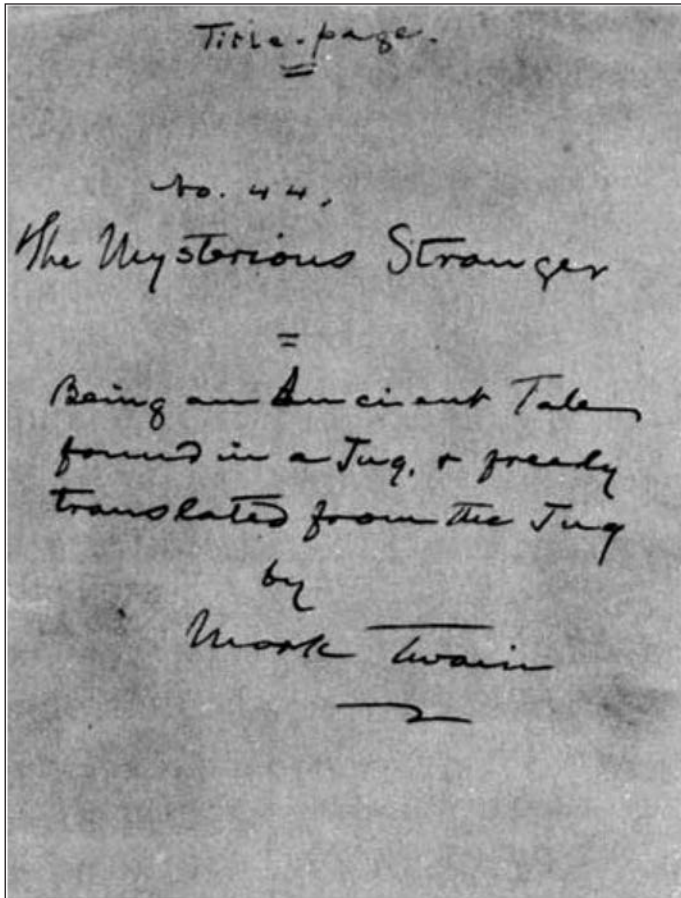 Title-page.
No. 44,
The Mysterious Stranger
=
Being an Ancient Tale
found in a Jug, & freely
translated from the Jug
by
Mark Twain